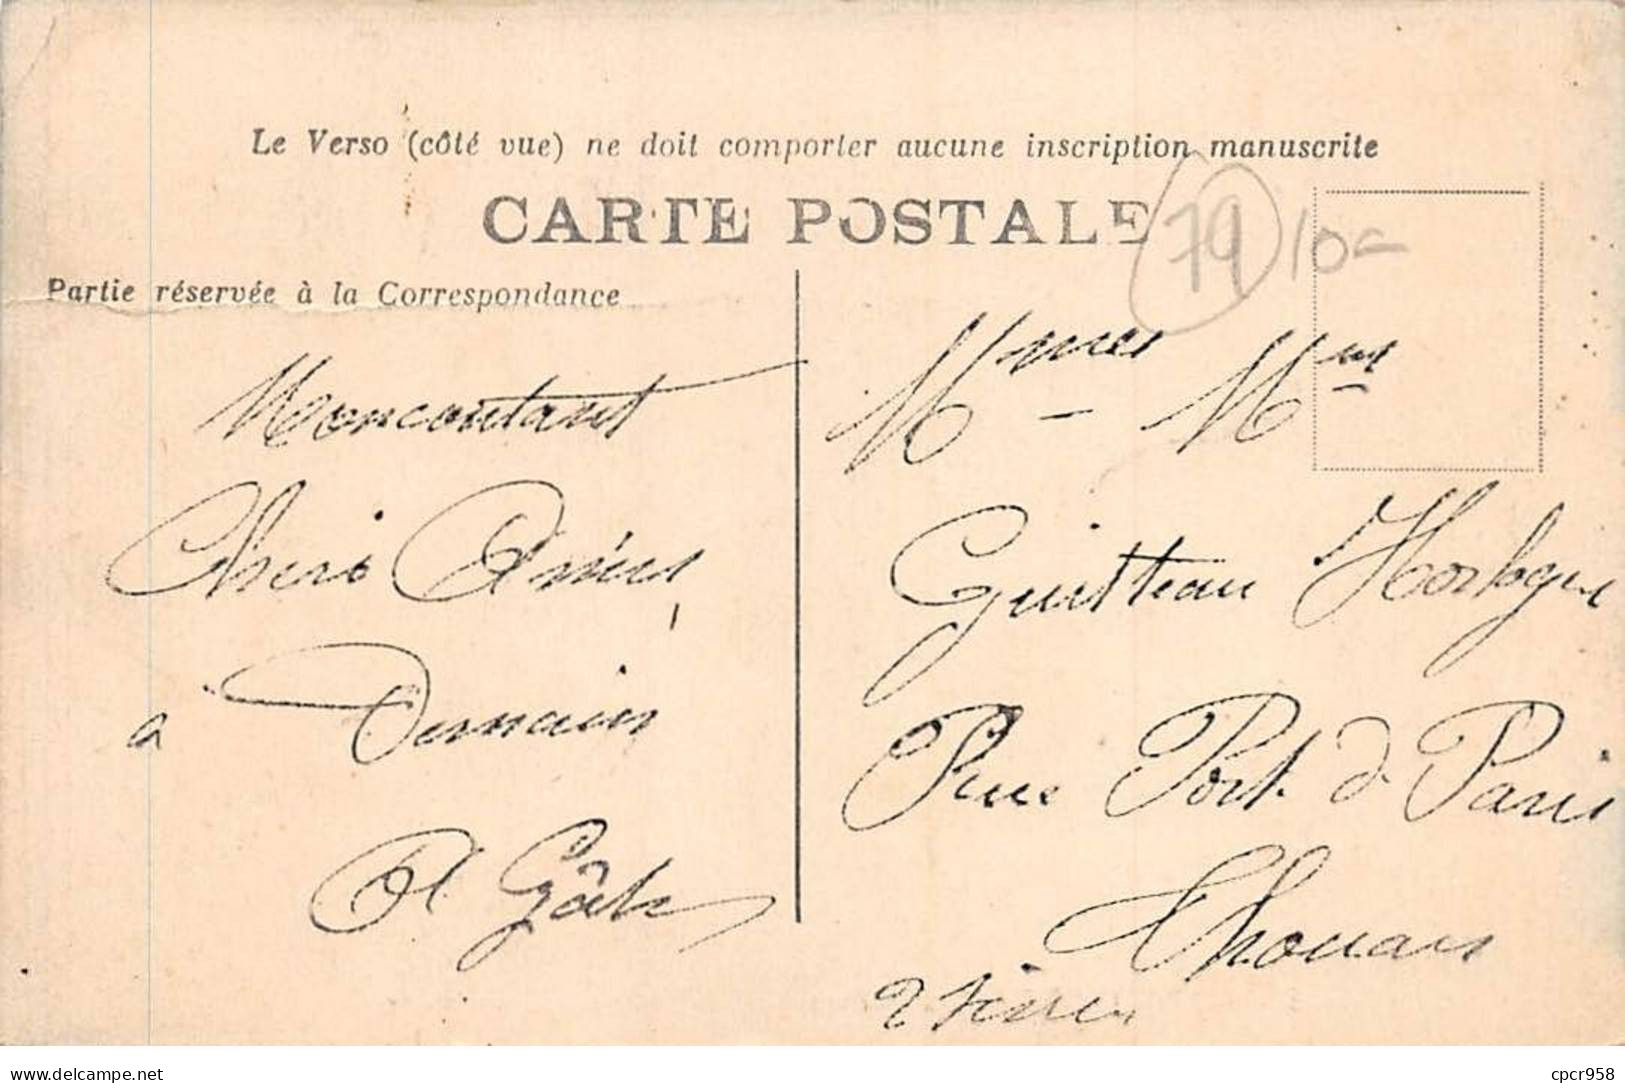 Le Verso (côté vue) ne doit comporter aucune inscription manuscrite
CARTE POSTALE
79 10
Partie réservée à la Correspondance
Moncoutant
Cheri Amies,
a Demain
A Gâte
Mmes - Mrs
Guitteau Horloger
Rue Port d Paris
Thouars
2 Sèvres
delcampe.net
cpcr958